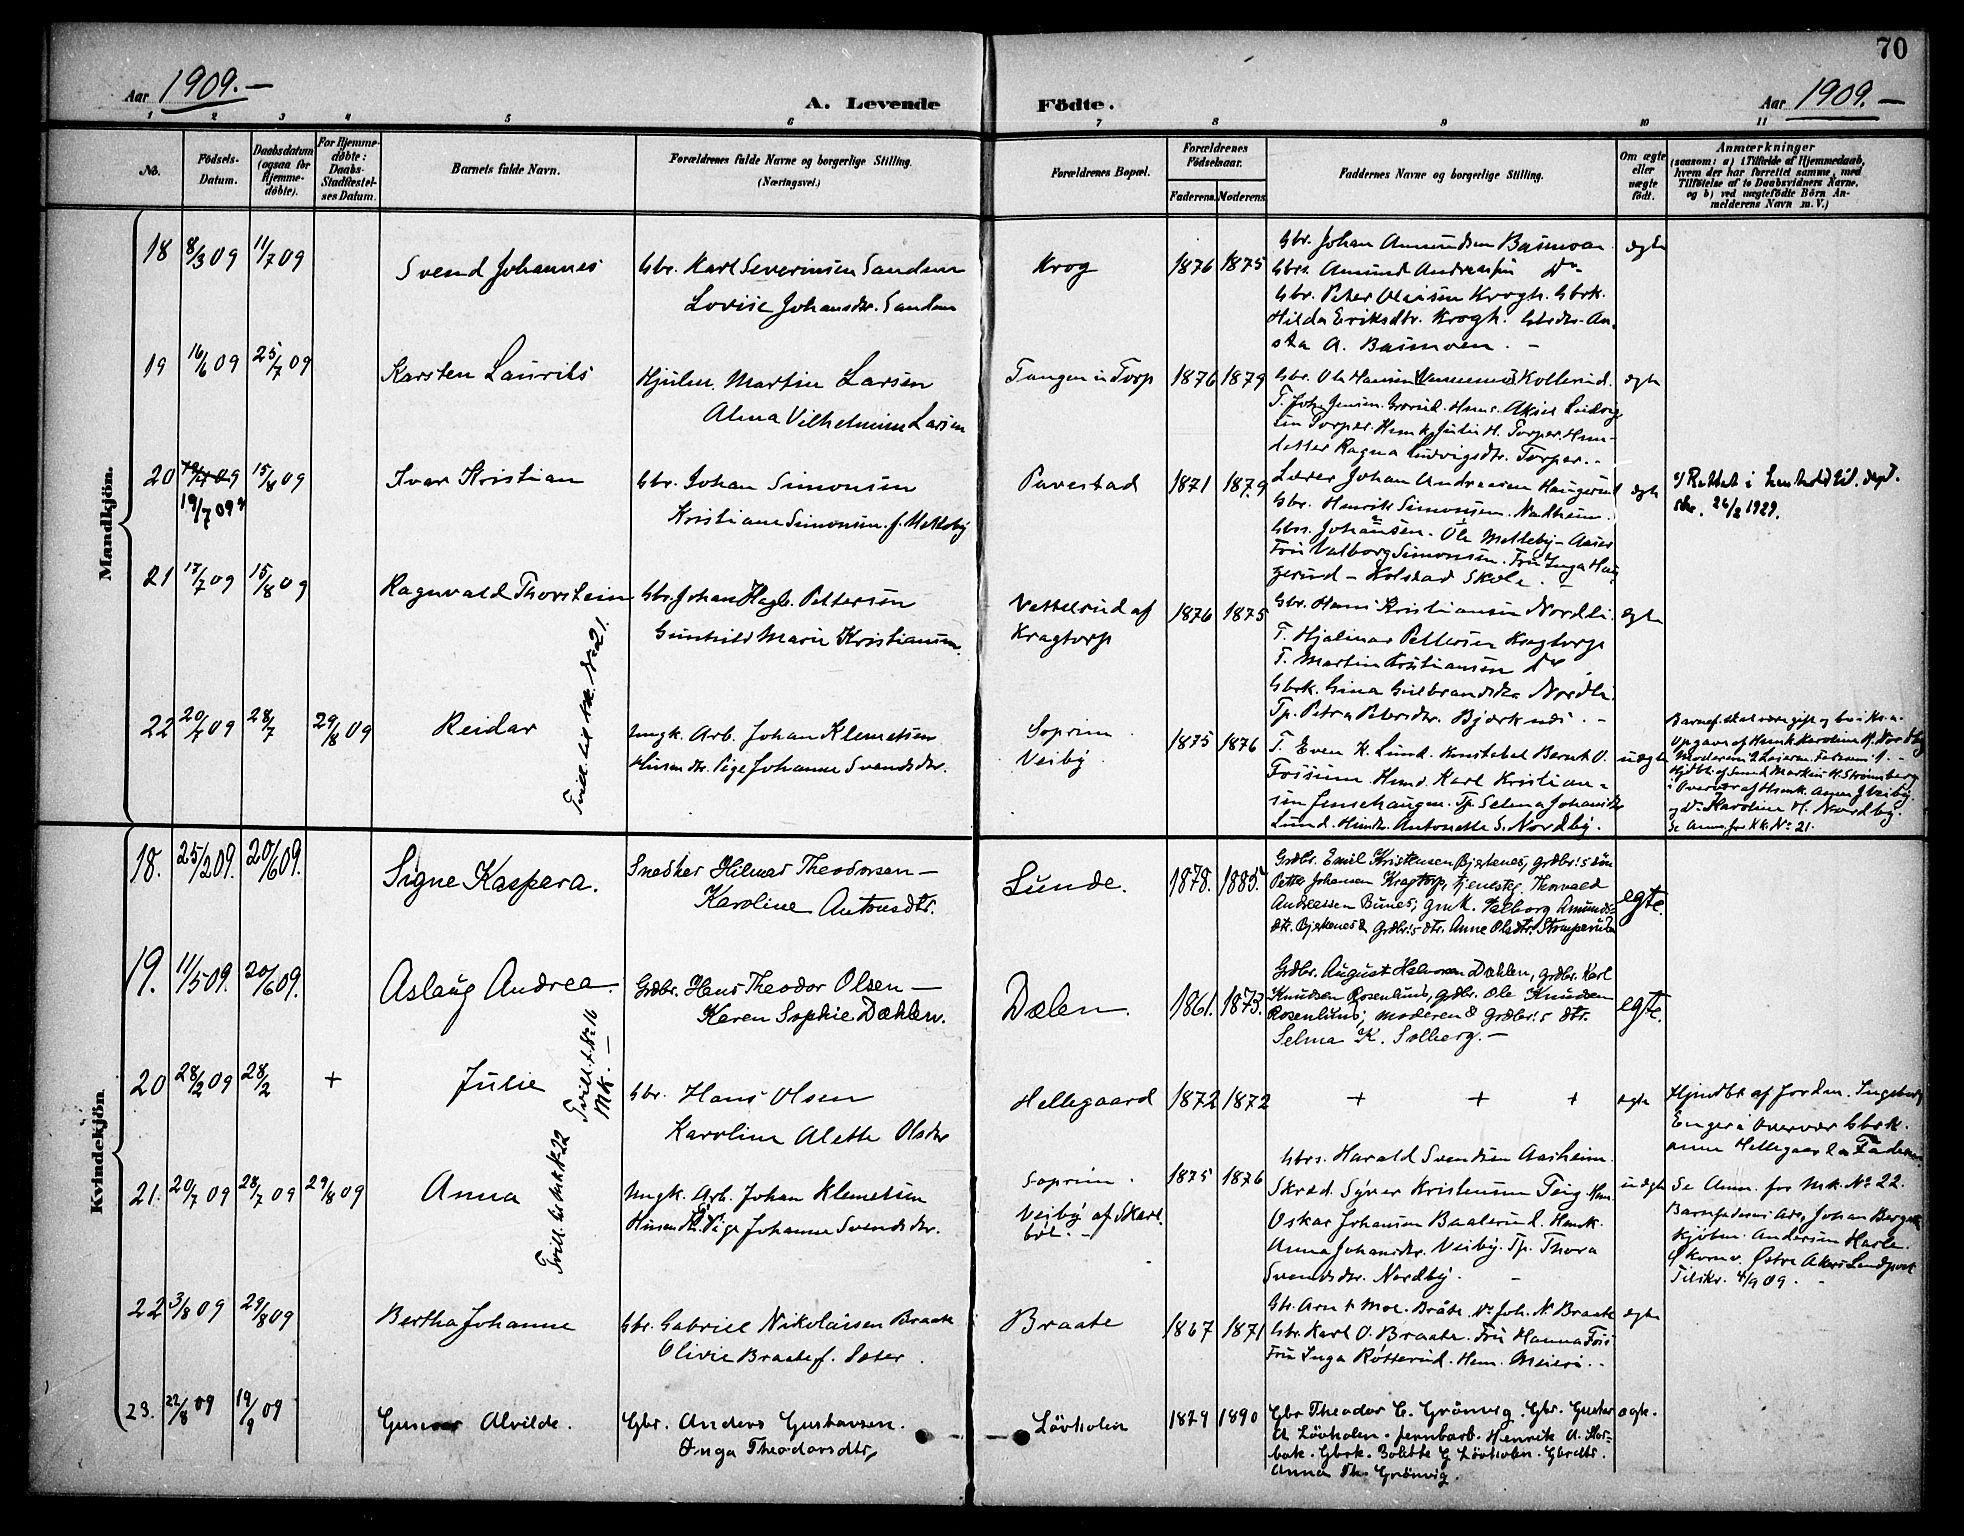 70
Aar 1909.—
A. Levende
Födte.
Aar 1909.—
1 2 3 4 5 6 7 8 9 10 11
No.
Födsels-
Datum.
Daabsdatum
(ogsaa for
Hjemme-
döbte).
For Hjemme-
döbte:
Daabs-
Stadfæstel-
ses Datum.
Barnets fulde Navn.
Forældrenes fulde Navne og borgerlige Stilling.
(Næringsvei.)
Forældrenes Bopæl.
Forældrenes
Födselsaar.
Faderens.
Moderens.
Faddernes Navne og borgerlige Stilling.
Om ægte
eller
uægte
födt.
Anmærkninger
(saasom: a) i Tilfælde af Hjemmedaab,
hvem der har forrettet samme, med
Tilföielse af to Daabsvidners Navne,
og b) ved uægtefödte Börn An-
melderens Navn m. V.)
Mandkjön.
18 8/3 09 11/7 09
Svend Johannes
Gbr. Karl Severinsen Sandum
Lovise Johansdtr. Sandum
Krog
1876 1875
Gbr. Johan Amundsen Basmoen
Gbrs. Amund Andreassen Do
Gbr. Peter Olausen Krogh. Gbrk.
Hilda Eriksdtr. Krogh. Gbrdtr. An-
sta A. Basmoen. —
ægte
19 16/6 09 25/7 09
Karsten Laurits
Hjulm. Martin Larsen
Alma Vilhelmine Larsen
Tangen u Torp
1876 1879
Gbr. Ole Hansen Kollerud.
T. John Jensen Grorud. Hmns. Aksel Ludvig
sen Torper. Hmnk. Julie H. Torper. Hmn-
detter Ragna Ludvigsdtr. Torper. -
ægte
20 19/4 09 15/8 09
19/7 09
Ivar Kristian
Gbr. Johan Simonsen
Kristiane Simonsen f. Melleby
Pavestad
1871 1879
Lærer Johan Andreasen Haugerud
Gbr. Henrik Simonsen. Nadheim.
Gbrs. Johansen. Ole Melleby - Aaser
Fru Valborg Simonsen. Fru Inga Hau-
gerud — Holstad Skole. —
ægte
Rettet i henhold til. dept.
skr. 26/2 1929.
21 17/7 09 15/8 09
Ragnvald Thorstein
Tvill. til Kk. No 21.
Gbr. Johan Hagb. Pettersen
Gunhild Marie Kristiansen.
Vettelsrud af
Kragtorp
1876 1875
Gbr. Hans Kristiansen Nordli.
T. Hjalmar Pettersen Kragtorp
T. Martin Kristiansen Do
Gbrk. Gina Gulbrandsdtr Nordli
Tp. Petra Petersdtr. Bjerknes. -
egte
22 20/7 09 28/7 29/8 09
Reidar
Ungk. Arb. Johan Klemetsen
Husmdtr. Pige Johanne Svendsdtr.
Soprim
Veiby.
1875 1876
T. Even K. Lund. Konstabel Bernt O.
Fossum. Hmnd. Karl Kristian-
sen Jensehaugen. Tp. Selma Johansdtr
Lund. Hmdtr. Antonette S. Nordby.
uægte
Barnef. skal være gift og bo i Kr.a.
Opgave af Hmnk. Karoline M. Nordby
Moderens 2 Leierm. Faderens 1. -
Hjdbt. af Hmnd Markus H. Strømsberg
i Overvær af Hmnk. Agnes J Veiby.
og Do Karoline M. Nordby.
Se Anm. for Kk. No 21.
Kvindekjön
18. 25/2 09. 20/6 09.
Signe Kaspara.
Snedker Hilmar Theodorsen —
Karoline Antonsdtr.
Lunde.
1878. 1885.
Grdbr. Emil Kristensen Bjerkenes, grdbr.s sön
Petter Johansen Kragtorp, tjenestg. Thorvald
Andreassen Bunes; gmk. Valborg Amunds-
dtr. Bjerkenes & grdbr.s dtr. Anne Olsdtr. Stomperud
egte.
19. 11/5 09. 20/6 09.
Aslaug Andrea.
Grdbr. Hans Theodor Olsen —
Karen Sophie Dæhlen.
Dælen.
1861. 1873.
Grdbr. August Halvorsen Dæhlen, grdbr. Karl
Knudsen Rosenlund, grdbr. Ole Knudsen
Rosenlund; moderen & grdbr.s dtr.
Selma K. Solberg. —
egte.
20 28/2 09 28/2 +
Julie
Tvill. t. No 16
Mk. —
Gbr. Hans Olsen
Karoline Alette Olsdtr
Hellegaard
1872 1872
+ + +
ægte
Hjmdbt af Jordm. Ingeborg
Enger i Overvær Gbrk.
Anne Hellegaard & Faderen
21. 20/7 09 28/7 09 29/8 09
Anna
Tvill. til Mk. No 22
Ungk. Arb. Johan Klemetsen
Husmdtr. Pige Johanne Svendsdtr.
Soprim.
Veiby af Skarl.
böl. -
1875 1876
Gbrs. Harald Svendsen Aasheim.
Skræd. Syver Kristensen Teig Hmn.
Oskar Johansen Baalerud. Hmnk.
Anna Johansdtr. Veiby. Tp. Thora
Svendsdtr. Nordby. —
uægte
Se Anm. for Mk. No 22.
Barnefaderens Adr, Johan Berge
Kjöbm. Andersen Hasle.
Økernv. Østre Aker Landpost
Tilskr. 4/9 09. -
22 3/8 09 29/8 09
Bertha Johanne
Gbr. Gabriel Nikolaisen Braate
Olivie Braate f. Sæter.
Braate
1867 1871
Gbr. Arnt Moe. Bråte. Do Joh. N. Braate
Gbr. Karl O. Braate. Fru Hanna Foss
Fru Inga Rötterud. Hem. Meieri. -
ægte
23. 22/8 09 19/9 09
Gunvor Alvilde.
Gbr. Anders Gustavsen.
Inga Theodorsdtr,
Lövholen
1879 1890
Gbr Theodor C. Grönvig. Gbr. Gustav
A Lövholen. jernbarb. Henrik A. Stor-
bak. Gbrk. Bolette G Lövholen. Gbrdtr.
Anna Th. Grönvig.
ægt.